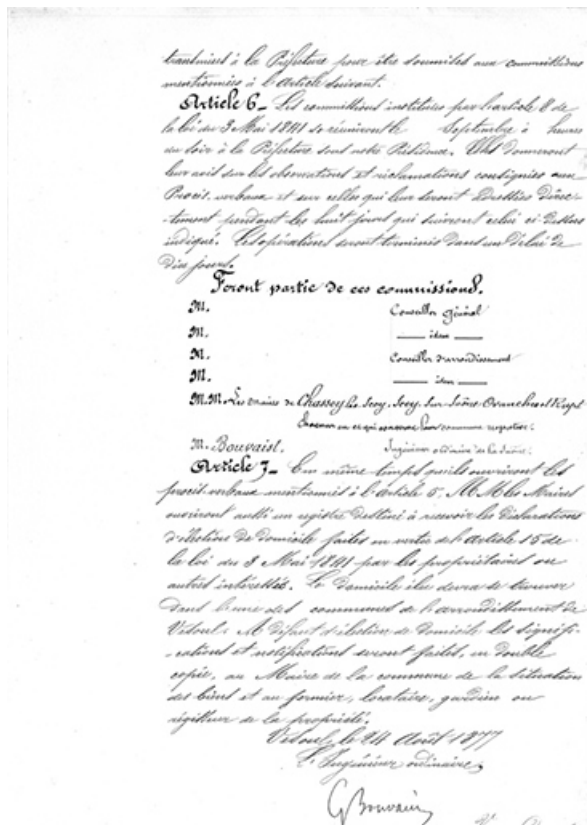 transmises à la Préfecture pour être soumises aux commissions
mentionnées à l'article suivant.
Article 6_ Les commissions instituées par l'article 8 de
la loi du 3 Mai 1841 se réuniront le Septembre à heures
du soir à la Préfecture sous notre Présidence. Elles donneront
leur avis sur les observations et réclamations consignées aux
Procès-verbaux et sur celles qui leur seront adressées direc-
-tement pendant les huit jours qui suivront celui ci-dessus
indiqué. Les opérations seront terminées dans un délai de
dix jours.
Feront partie de ces commissions.
M. Conseiller général
M. idem
M. Conseiller d'arrondissement
M. idem
M.M. Les maires de Chassey-les-Scey, Scey-sur-Saône, Ovanches et Rupt
chacun en ce qui concerne leur commune respective.
M. Bouvaist. Ingénieur ordinaire de la Saône.
Article 7_ En même temps qu'ils ouvriront les
procès-verbaux mentionnés à l'article 5, MM les Maires
ouvriront aussi un registre destiné à recevoir les déclarations
d'élection de domicile faites en vertu de l'article 15 de
la loi du 3 Mai 1841 par les propriétaires ou
autres intéressés. Le domicile élu devra se trouver
dans l'une des communes de l'arrondissement de
Vesoul. A défaut d'élection de domicile les signifi-
-cations et notifications seront faites, en double
copie, au Maire de la commune de la situation
des biens et au fermier, locataire, gardien ou
régisseur de la propriété.
Vesoul, le 24 Août 1877
L'Ingénieur ordinaire,
G Bouvaist